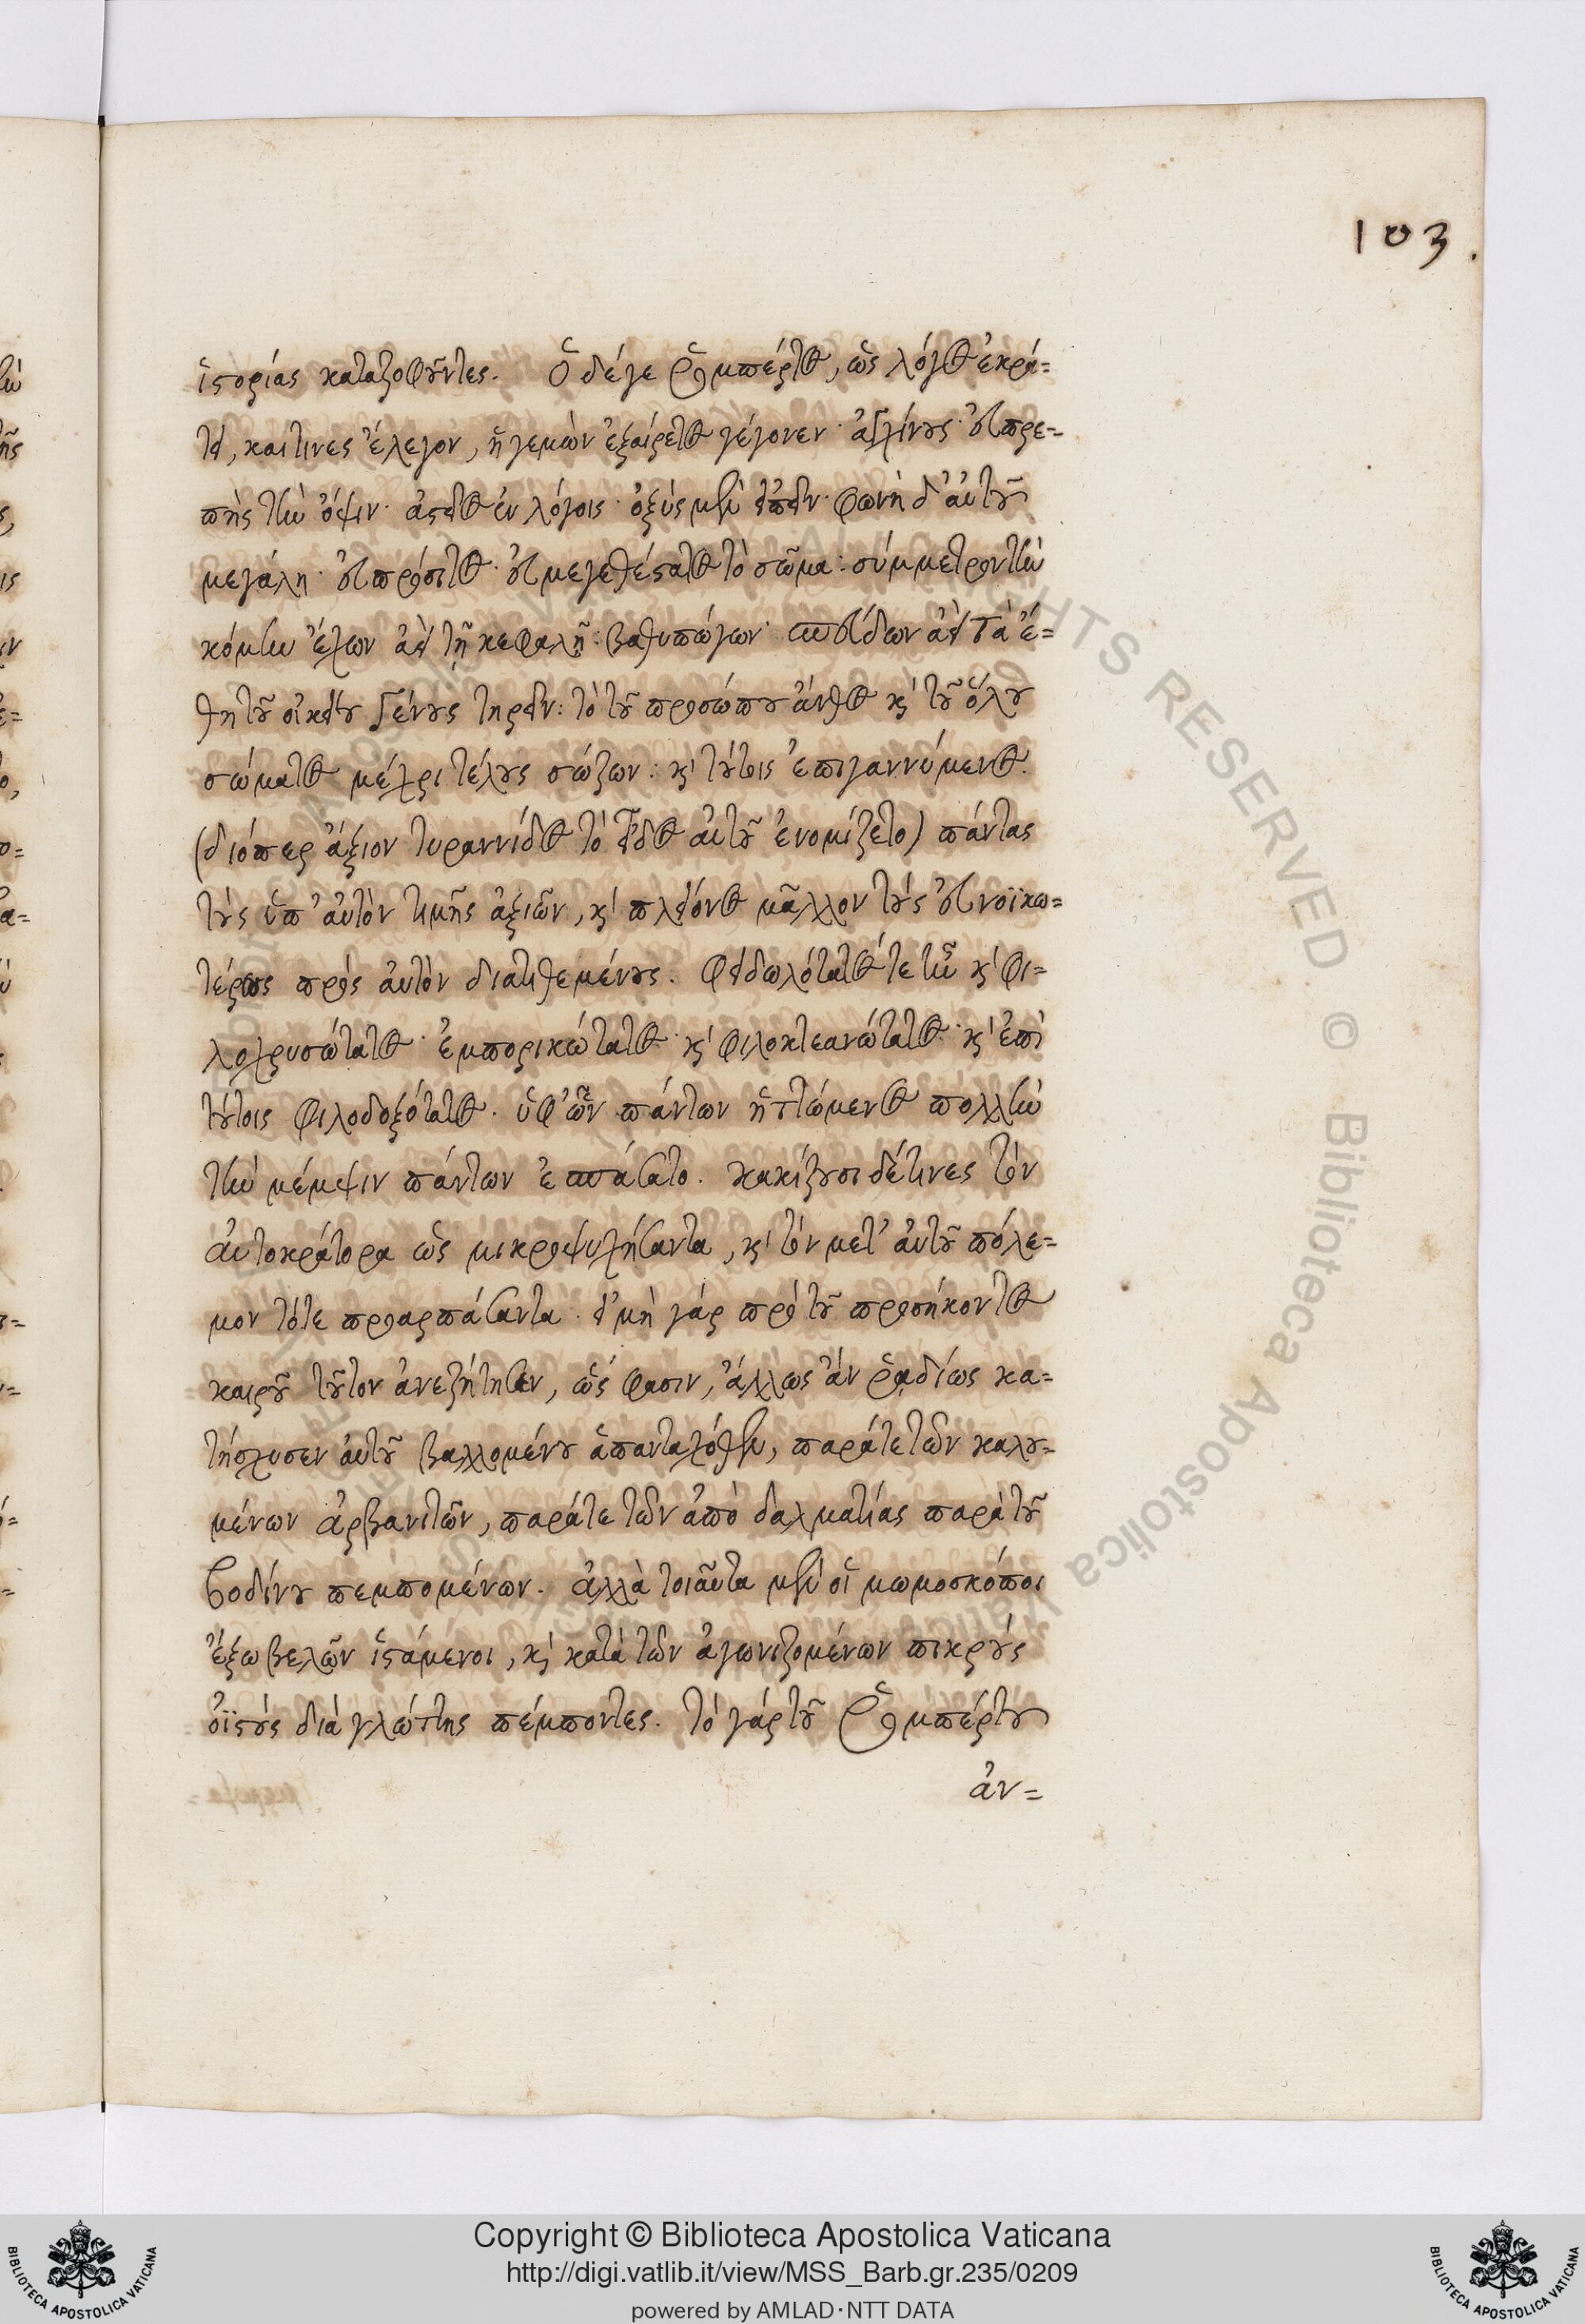 103.
ἱστορίας καταζοφοῦντες. Ὁ δέγε Ῥομπέρτος, ὡς λόγος ἐκρά-
τει, καί τινες ἔλεγον, ἡγεμὼν ἐξαίρετος γέγονεν· ἀγχίνους· εὐπρε-
πὴς τὴν ὄψιν· ἀστεῖος ἐν λόγοις· ὀξὺς μὲν εἰπεῖν· φωνὴ δ' αὐτοῦ
μεγάλη· εὐπρόσιτος· εὐμεγεθέστατος τὸ σῶμα: σύμμετρον τὴν
κόμην ἔχων ἀεὶ τῇ κεφαλῇ: βαθυπώγων· σπεύδων ἀεὶ τὰ ἔ-
θη τοῦ οἰκείου γένους τηρεῖν: τὸ τοῦ προσώπου ἄνθος κὶ τοῦ ὅλου
σώματος μέχρι τέλους σώζων: κὶ τούτοις ἐπιγαννύμενος.
(διόπερ ἄξιον τυραννίδος τὸ εἶδος αὐτοῦ ἐνομίζετο) πάντας
τοὺς ὑπ' αὐτὸν τιμῆς ἀξιῶν, κὶ πλείονος μᾶλλον τοὺς εὐνοϊκω-
τέρως πρὸς αὐτὸν διατιθεμένους. Φειδωλότατός τε ἦν κὶ φι-
λοχρυσώτατος· ἐμπορικώτατος· κὶ φιλοκτεανώτατος· κὶ ἐπὶ
τούτοις φιλοδοξότατος. ὑφ' ὧν πάντων ἡττώμενος πολλὴν
τὴν μέμψιν πάντων ἐσπάσατο. κακίζουσι δέ τινες τὸν
αὐτοκράτορα ὡς μικροψυχήσαντα, κὶ τὸν μετ' αὐτοῦ πόλε-
μον τότε προαρπάσαντα. εἰ μὴ γὰρ πρὸ τοῦ προσήκοντος
καιροῦ τοῦτον ἀνεζήτησεν, ὥς φασιν, ἄλλως ἂν ῥαδίως κα-
τήσχυσεν αὐτοῦ βαλλομένου ἁπανταχόθεν, παρά τε τῶν καλου-
μένων ἀρβανιτῶν, παρά τε τῶν ἀπὸ δαλματίας παρὰ τοῦ
βοδίνου πεμπομένων. ἀλλὰ τοιαῦτα μὲν οἱ μωμοσκόποι
ἔξω βελῶν ἱστάμενοι, κὶ κατὰ τῶν ἀγωνιζομένων πικροὺς
ὀϊστοὺς διὰ γλώττης πέμποντες. τὸ γὰρ τοῦ Ῥομπέρτου
ἀν-
Copyright © Biblioteca Apostolica Vaticana
http://digi.vatlib.it/view/MSS_Barb.gr.235/0209
powered by AMLAD·NTT DATA
BIBLIOTECA APOSTOLICA VATICANA
BIBLIOTECA APOSTOLICA VATICANA